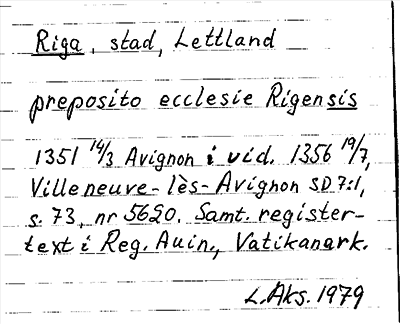 Riga, stad, Lettland
preposito ecclesie Rigensis
1351 14/3 Avignon i vid. 1356 19/7,
Villeneuve-lès-Avignon SD 7:1,
s. 73, nr 5620. Samt. register-
text i Reg. Auin., Vatikanark.
L.Aks. 1979